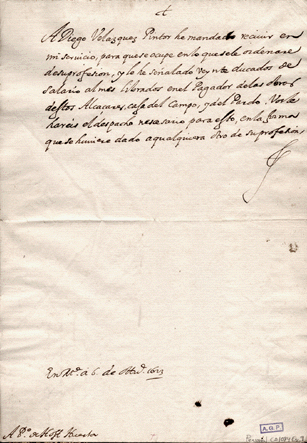 A Diego Velazquez Pintor he mandado recivir en
mi servicio, para que se ocupe en lo que se le ordenare
de su profesion, y le he señalado veynte ducados de
salario al mes librados en el Pagador de las obras
destos Alcaçares, casa del Campo, y del Pardo. Vos le
hareis el despacho necesario para esto, en la forma
que se huviere dado a qualquiera otro de su profesion
En a 6 de 1623
A P.º de Hoff Huerta
A.G.P.